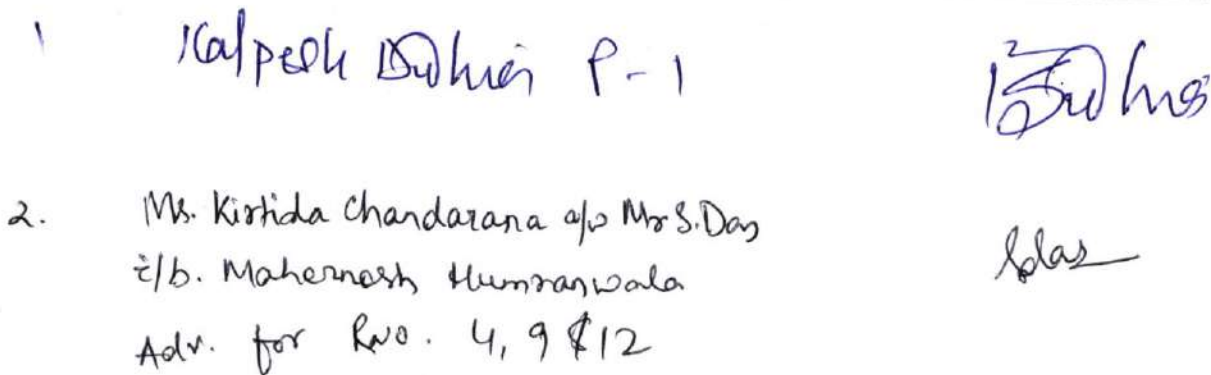 1 Kalpesh P-1
2. Ms. Kirtida Chandarana a/w Mr S. Das
i/b. Mahernosh Humranwala
Adv. for RNo. 4, 9 & 12